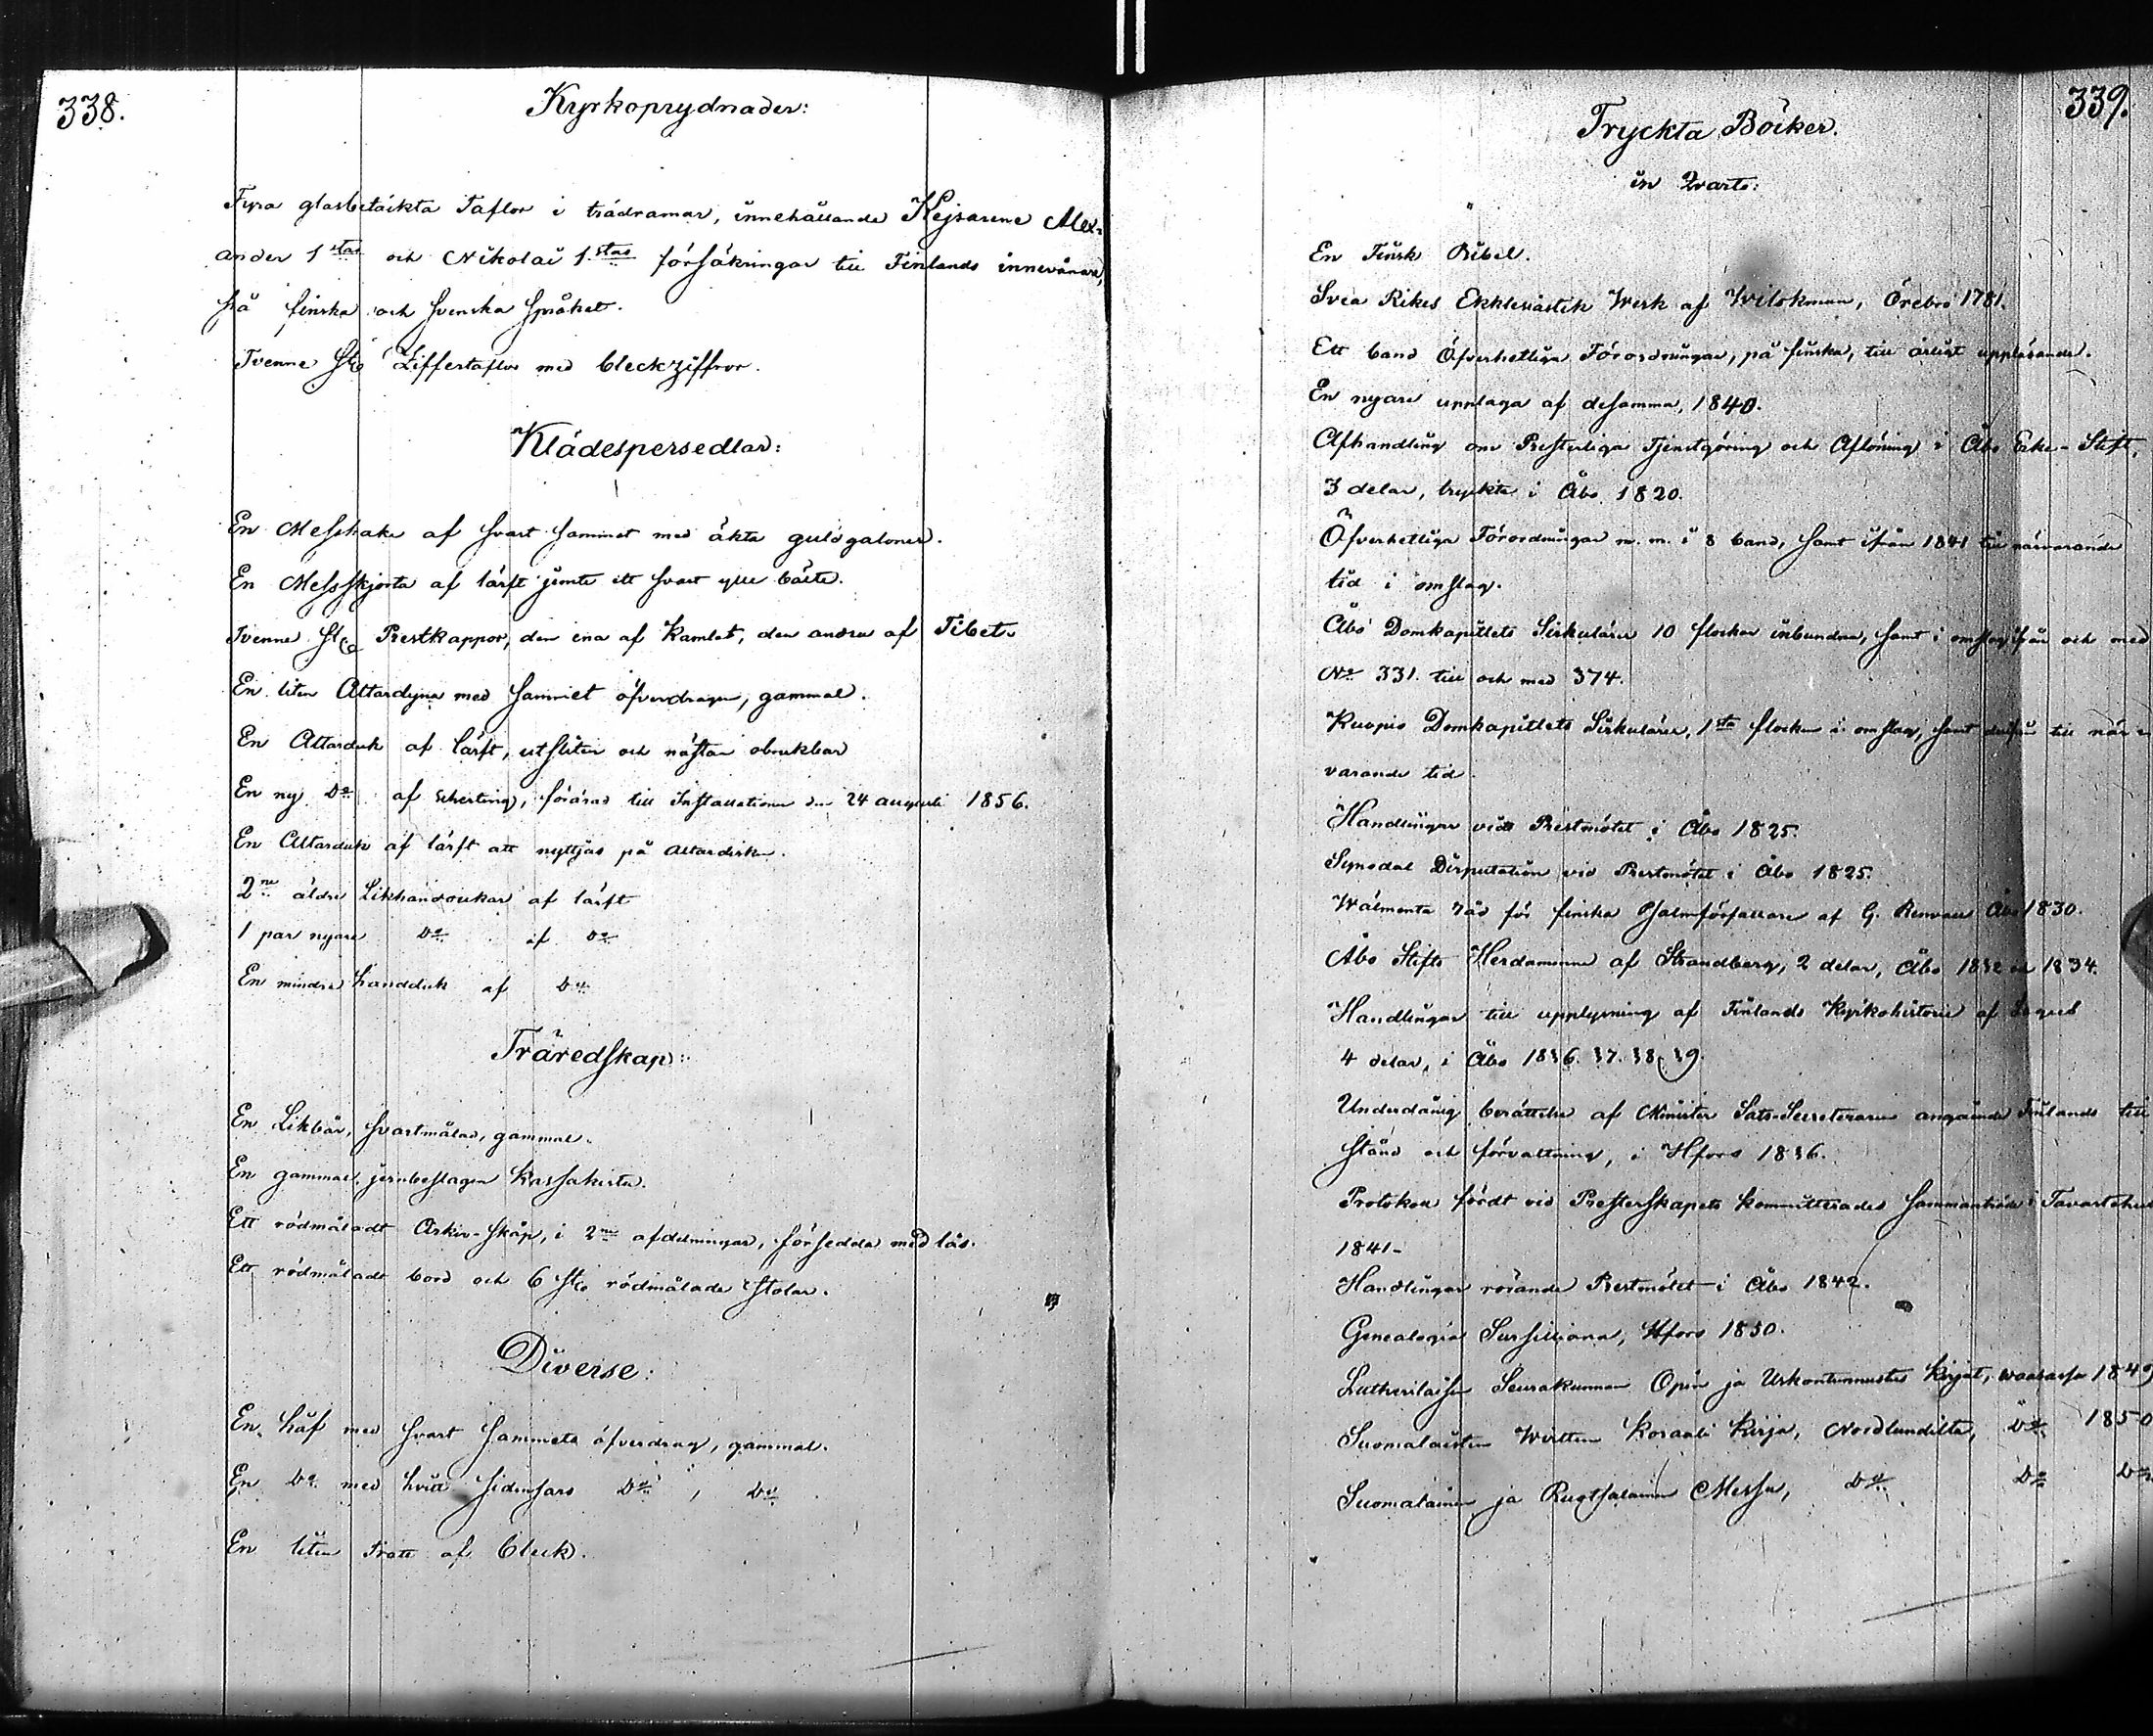 338.
Kyrkoprydnader:
Fyra glasbetäckta Taflor i trädramar, innehållande Kejsarene Alex=
ander 1stas och Nikolai 1.stas försäkringar till Finlands innevånare,
på finska och svenska språket.
Tvenne st. Ziffertaflor med bleckziffror.
Klädespersedlar:
En Messhake af svart sammet med äkta guldgaloner.
En Messskjorta af lärft jemte ett svart ylle bälte.
Tvenne st. Prestkappor, den ena af Kamlot, den andra af Tibet.
En liten Altardyna med sammet öfverdragen, gammal.
En Altarduk af lärft, utsliten och nästan obrukbar
En ny Do af Scherting, förärad till Installationen den 24 augusti 1856.
En Altarduk af lärft att nyttjas på altardisken.
2ne äldre Likhanddukar af lärft
1 par nyare Do af Do
En mindre handduk af Do
Träredskap:
En Likbår, svartmålad, gammal.
En gammal jernbeslagen Kassakista.
Ett rödmåladt Arkiv-skåp, i 2ne afdelningar, försedda med lås.
Ett rödmåladt bord och 6 st. rödmålade Stolar.
Diverse:
En håf med svart sammets öfverdrag, gammal.
En Do med hvitt sidensars Do, Do
En liten Tratt af bleck.
339.
Tryckta Böcker.
in Qvarto:
En Finsk Bibel.
Svea Rikes Ekklesiastik Werk af Wilskman, Örebro 1781.
Ett band Öfverhetliga Förordningar, på finska, till årligt uppläsande.
En nyare upplaga af desamma, 1840.
Afhandling om Presterliga Tjenstgöring och Aflöning i Åbo Erke-Stift,
3 delar, tryckte i Åbo 1820.
Öfverhetliga Förordningar m. m. i 8 band, samt ifrån 1841 till närvarande
tid i omslag.
Åbo Domkapitlets Sirkulärer 10 flockar inbundna, samt i omslag ifrån och med
No 331. till och med 374.
Kuopio Domkapitlets Sirkulärer, 1sta flocken i omslag, samt derifrån till när=
varande tid.
Handlingar vid Prestmötet i Åbo 1825.
Synodal Disputation vid Prestmötet i Åbo 1825.
Wälmenta råd för finska Psalmförfattare af G. Renvall Åbo 1830.
Åbo Stifts Herdaminne af Strandberg, 2 delar, Åbo 1832 och 1834.
Handlingar till upplysning af Finlands Kyrkohistorie af
4 delar, i Åbo 1836. 37. 38. 39.
Underdånig berättelse af Minister Stats-Secreteraren angående Finlands till
stånd och förvaltning, i Hfors 1836.
Protokoll fördt vid Presterskapets kommitterades sammanträde i Tavastehus
1841.
Handlingar rörande Prestmötet i Åbo 1842.
Genealogia Sursilliana, Hfors 1850.
Lutherilaisen Seurakunnan Opin ja Uskontunnustus Kirjat, Waasassa 1849
Suomalaisten Wirtten Koraali Kirja, Nordlundilta, Do 1850
Suomalainen ja Ruotsalainen Messu, Do Do Do